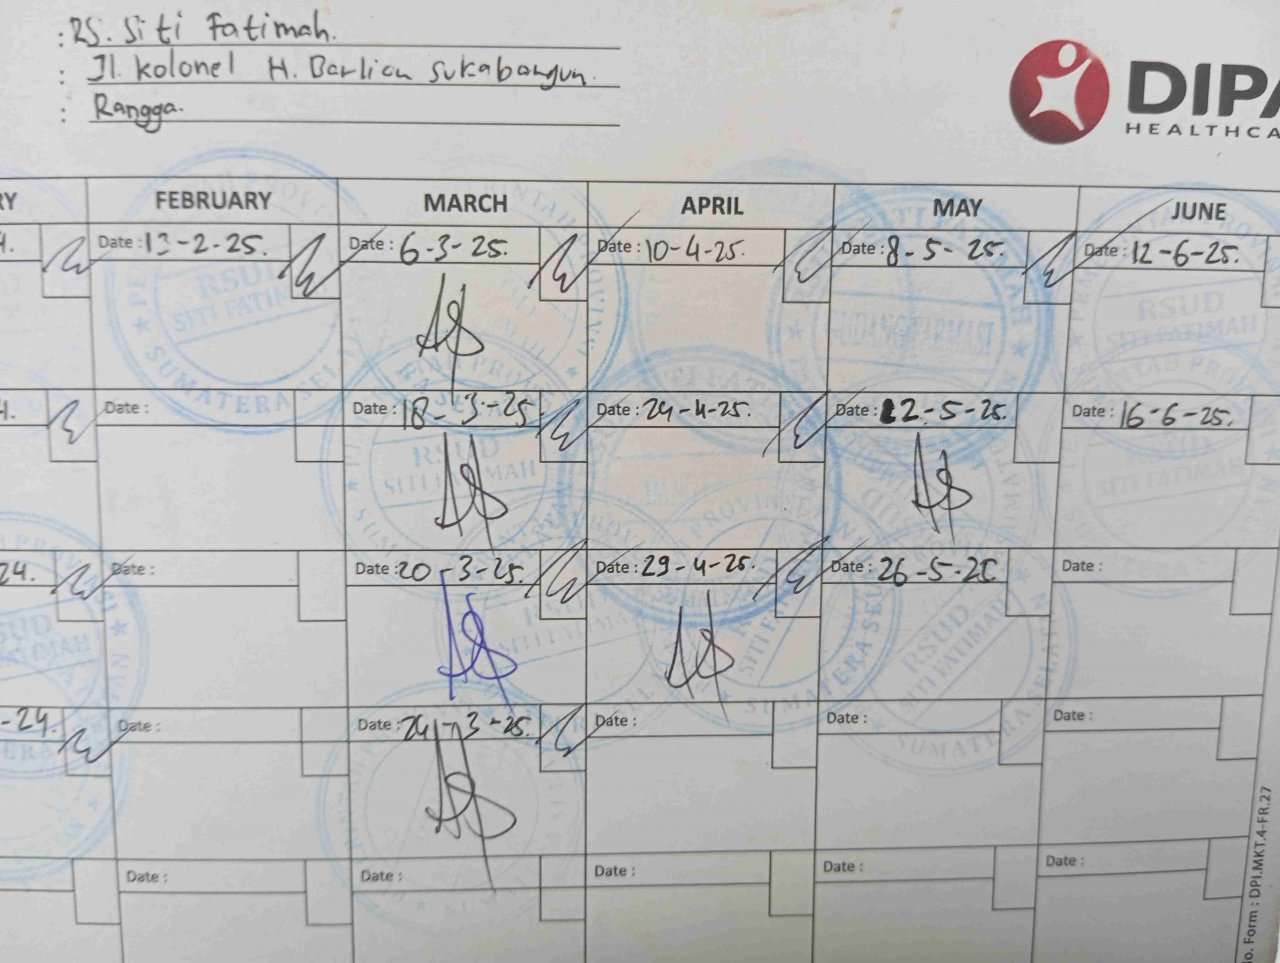 : RS. Siti Fatimah.
: Jl. Kolonel H. Barlian Sukabangun.
: Rangga.
DIPA
HEALTHCA
RY FEBRUARY MARCH APRIL MAY JUNE
4. Date : 13-2-25. Date : 6-3-25. Date : 10-4-25. Date : 8-5-25. Date : 12-6-25.
RSUD
SITI FATIMAH
SUMATERA SEL
RSUD
SITI FATIMAH
4. Date : Date : 18-3-25 Date : 24-4-25. Date : 22-5-25. Date : 16-6-25.
RSUD
SITI FATIMAH
24. Date : Date : 20-3-25. Date : 29-4-25. Date : 26-5-25
RSUD
SITI FATIMAH
SUMATERA SEL
Date :
-24. Date : Date : 24-3-25. Date : Date : Date :
Date : Date : Date : Date : Date :
o. Form : DPI.MKT.4-FR.27